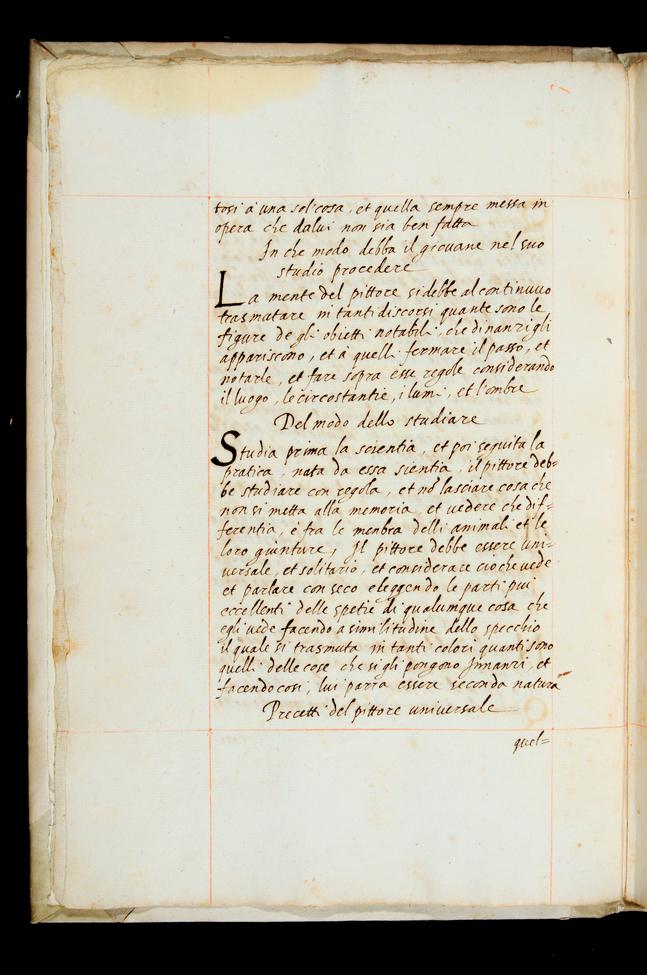 tosi à una sol cosa, et quella sempre messa in
opera che da lui non sia ben fatta
In che modo debba il giovane nel suo
studio procedere
La mente del pittore si debbe al continuuo
trasmutare in tanti discorsi quante sono le
figure de gli obietti notabili, che dinanzi gli
appariscono, et à quelli fermare il passo, et
notarle, et fare sopra esse regole considerando
il luogo, le circostantie, i lumi, et l'ombre
Del modo dello studiare
Studia prima la scientia, et poi seguita la
pratica, nata da essa sientia, il pittore deb=
be studiare con regola, et nō lasciare cosa che
non si metta alla memoria, et vedere che dif=
ferentia, è fra le menbra delli animali et le
loro guinture, Il pittore debbe essere uni=
versale, et solitario, et considerare cio che vede
et parlare con seco eleggendo le parti piu
eccellenti delle spetie di qualumque cosa che
egli vede facendo a similitudine dello specchio
il quale si trasmuta in tanti colori quanti sono
quelli delle cose che si gli pongono Innanzi, et
facendo cosi, lui parra essere seconda natura
Precetti del pittore universale
quel=